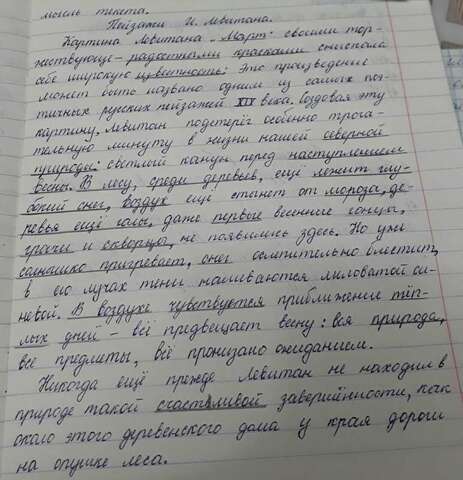 мысль текста.
Пейзажи И. Левитана.
Картина Левитана „Март" своими тор-
жествующе-радостными красками снискала
себе широкую известность: Это произведение
может быть названо одним из самых поэ-
тичных русских пейзажей XIX века. Создавая эту
картину, Левитан подстерёг особенно трога-
тельную минуту в жизни нашей северной
природы: светлый канун перед наступлением
весны. В лесу, среди деревьев, ещё лежит глу-
бокий снег, воздух ещё стынет от мороза, де-
ревья ещё голы, даже первые весенние гонцы,
грачи и скворцы, не появились здесь. Но уже
солнышко пригревает, снег ослепительно блестит
в его лучах тени наливаются лиловатой си-
невой. В воздухе чувствуется приближение тёп-
лых дней – всё предвещает весну: вся природа,
все предметы, всё пронизано ожиданием.
Никогда ещё прежде Левитан не находил в
природе такой счастливой завершённости, как
около этого деревенского дома у края дороги
на опушке леса.